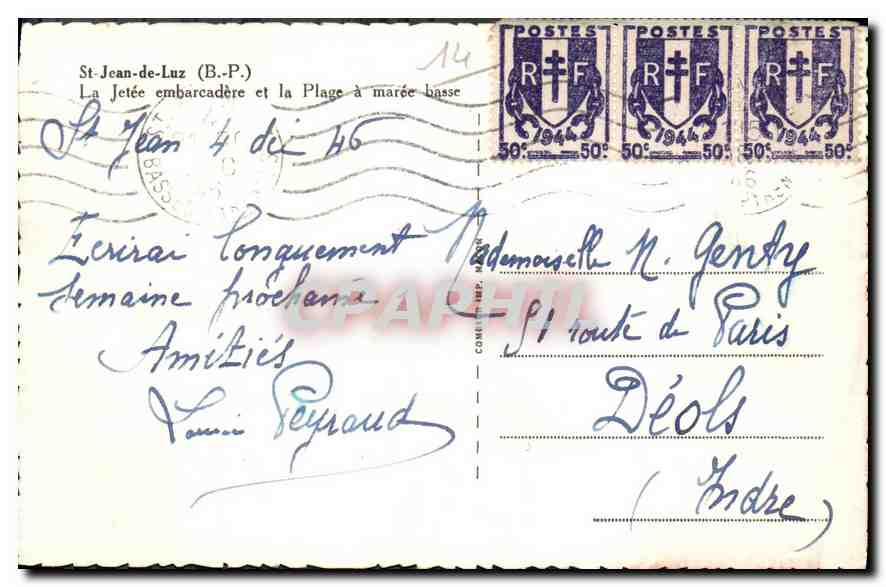 St-Jean-de-Luz (B.-P.)
La Jetée embarcadère et la Plage à marée basse
14
POSTES POSTES POSTES
R F R F R F
1944 1944 1944
50c 50c 50c 50c 50c 50c
St Jean 4 dec 46
Ecrirai longuement
semaine prochaine.
Amitiés
Peyraud
COMBIER IMP. MACON
CPAPHIL
Mademoiselle N. Genty
51 route de Paris
Déols
(Indre)